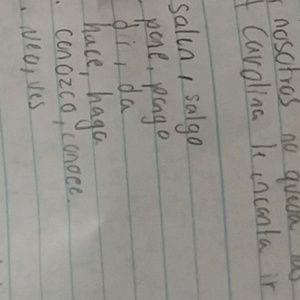 nosotros no queda
Carolina le encanta ir
salun, salgo
pone, pago
di, da
hace, haga
conozco, conoce
veo, ves